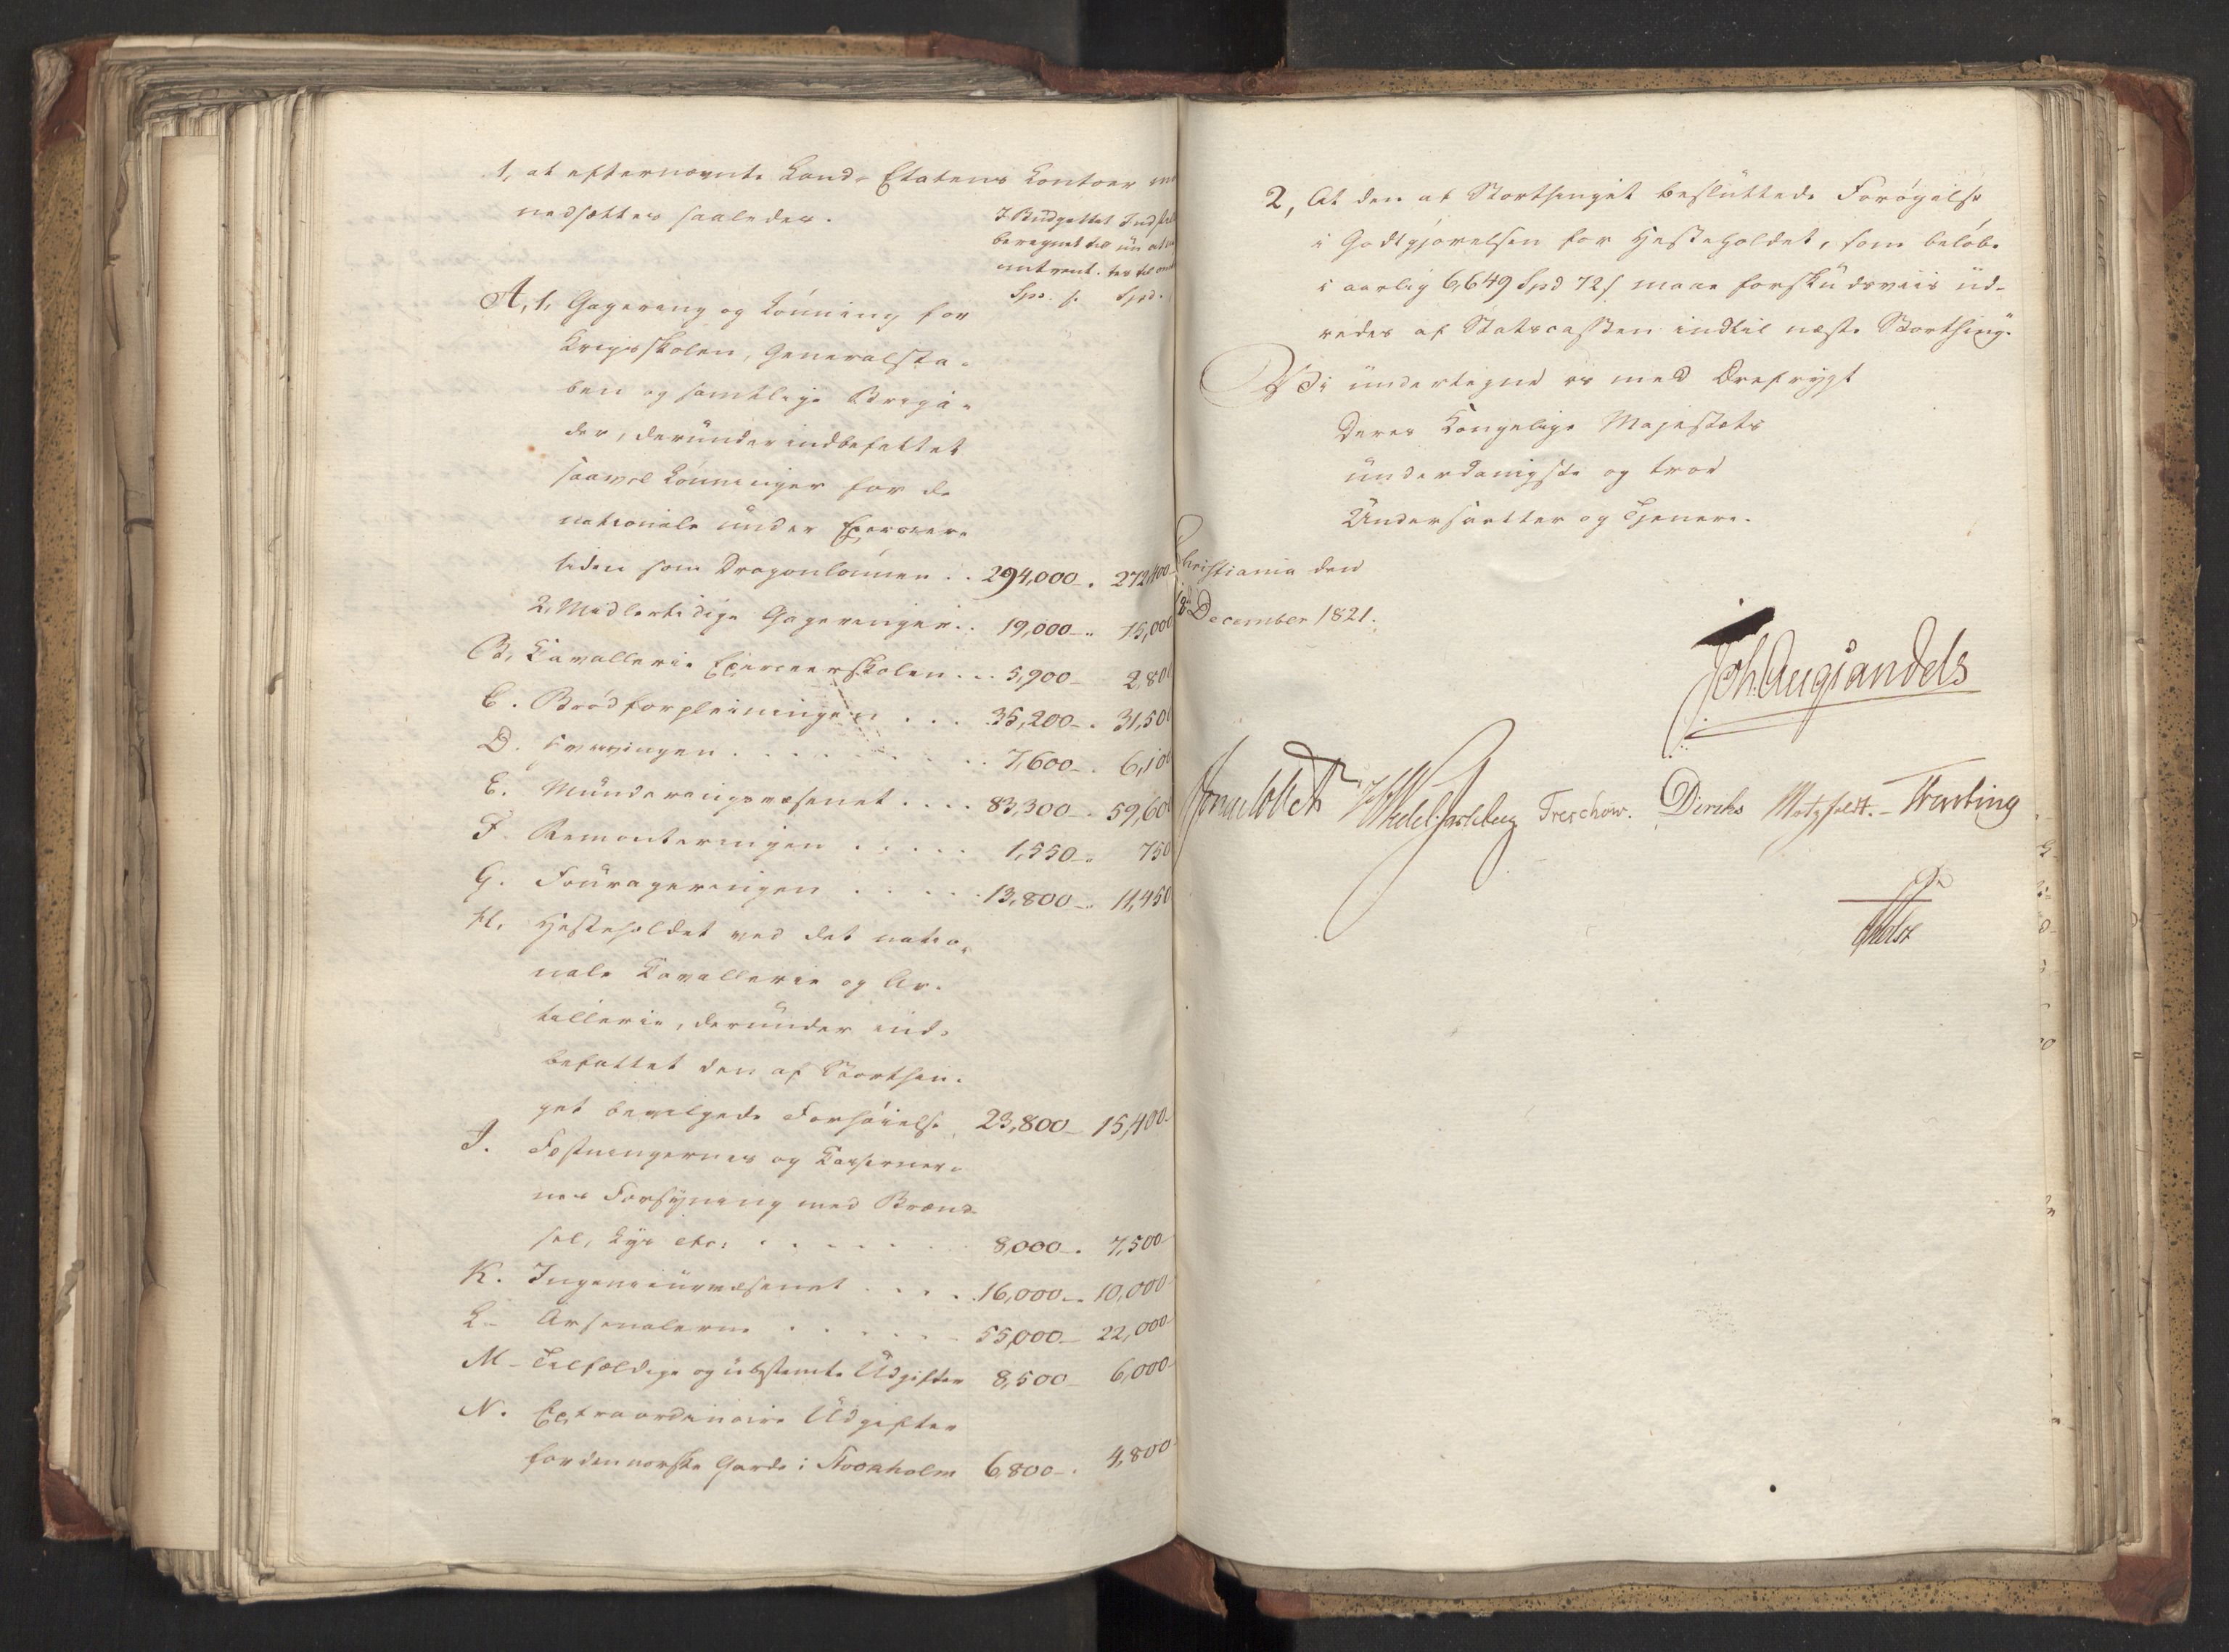 1, at efternævnte Land-Etatens Contoer
nedsættes saaledes.
I Budgettet
beregnet til
Spd. s. Spd.
A, 1, Gagering og Lønning for
Krigsskolen, Generalsta-
ben og samtlige Briga-
der, derunder indbefattet
saavel Lønninger for de
nationale under Exerceer-
tiden som Dragonlønnen . . 294,000 - . 272,400
2, Midlertidige Gageringer . . 19,000 - " 15,000
B, Cavallerie Exerceerskolen . . . 5,900 - 2,800
C. Brødforpleiningen . . . . 35,200 - . 31,500
D. Hvervingen . . . . . . . . . 7,600 - . 6,100
E. Munderingsvæsenet . . . . 83,300 - . 59,600
F. Remonteringen . . . . . 1,550 - " 750
G. Fourageringen . . . . . 13,800 - " 11,450
H, Hesteholdet ved det natio-
nale Cavallerie og Ar-
tillerie, derunder ind-
befattet den af Storthin-
get bevilgede Forhøielse 23,800 - 15,400 -
I. Fæstningernes og Casserner-
nes Forsyning med Brænd-
sel, Lys etc: . . . . . . . 8,000 - . 7,500 -
K. Ingenieurvæsenet . . . . 16,000 - . 10,000 -
L - Arsenalerne . . . . . . 55,000 - 22,000 -
M - Tilfældige og ubestemte Udgifter 8,500 - 6,000 -
N. Extraordinaire Udgifter
for den norske Garde i Stockholm 6,800 - . 4,800 -
2, At den af Storthinget besluttede Forøgelse
i Godtgjørelsen for Hesteholdet, som beløbe
i aarlig 6,649 Spd 72 s maae forskudsviis ud-
redes af Statscassen indtil næste Storthing."
Vi undertegne os med Ærefrygt
Deres Kongelige Majestæts
underdanigste og troe
Undersaatter og Tjenere.
Christiania den
18de December 1821.
Joh. Aug. Sandels
Sommerfeldt Wedel Jarlsberg Treschow. Diriks Motzfeldt. - Krebting
Holst